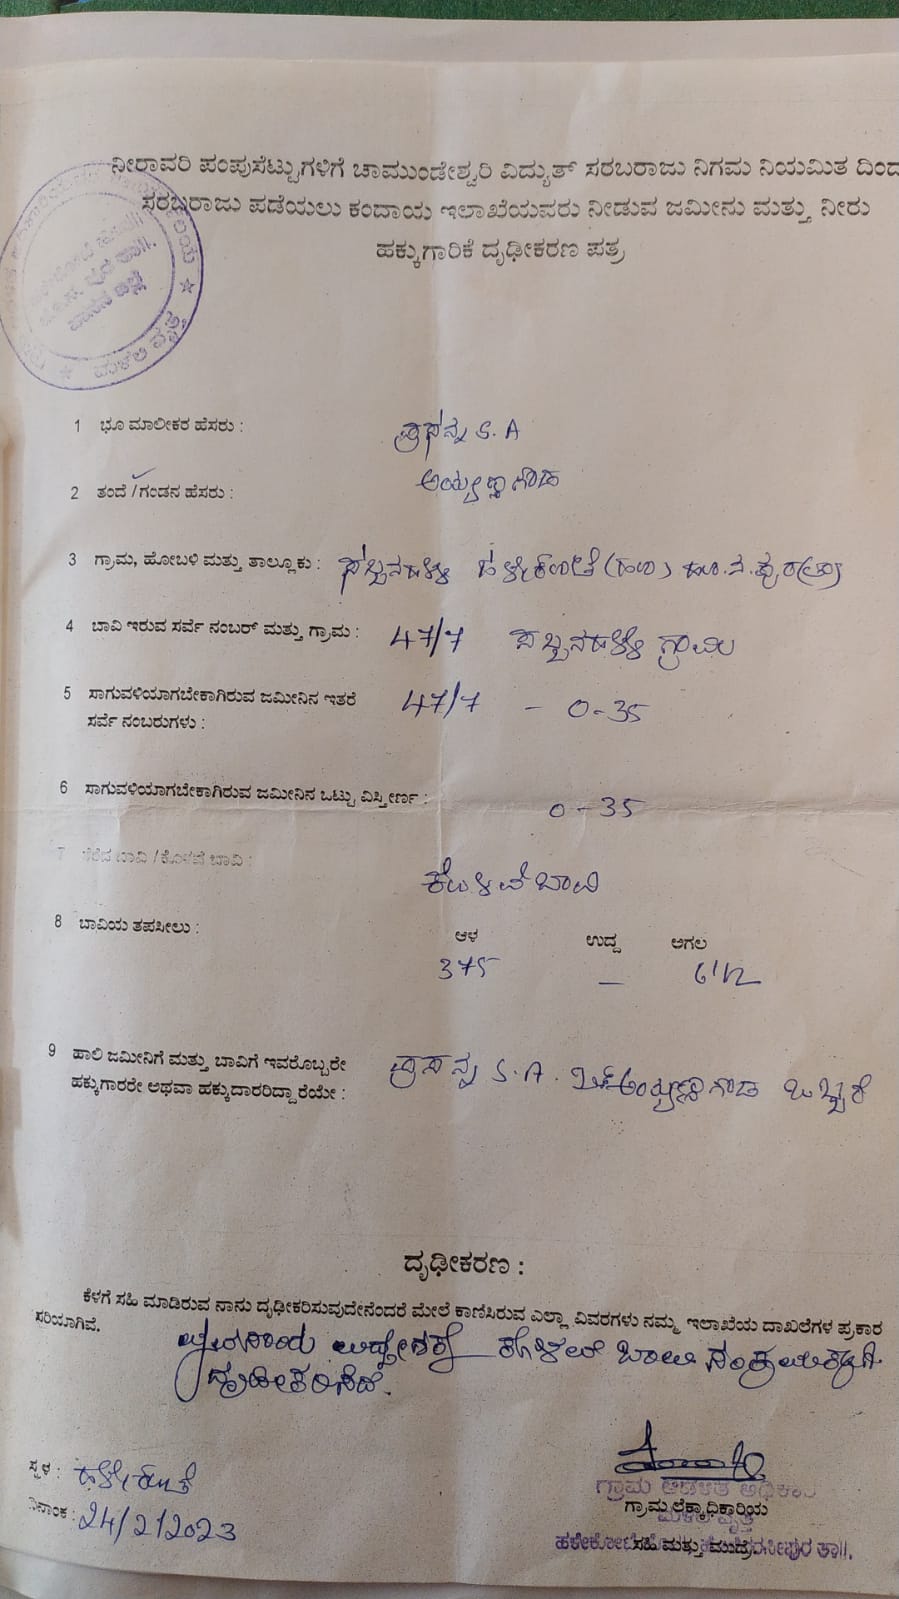 ನೀರಾವರಿ ಪಂಪುಸೆಟ್ಟುಗಳಿಗೆ ಚಾಮುಂಡೇಶ್ವರಿ ವಿದ್ಯುತ್ ಸರಬರಾಜು ನಿಗಮ ನಿಯಮಿತ ದಿಂದ
ಸರಬರಾಜು ಪಡೆಯಲು ಕಂದಾಯ ಇಲಾಖೆಯವರು ನೀಡುವ ಜಮೀನು ಮತ್ತು ನೀರು
ಹಕ್ಕುಗಾರಿಕೆ ದೃಢೀಕರಣ ಪತ್ರ
1 ಭೂ ಮಾಲೀಕರ ಹೆಸರು : ಪ್ರಸನ್ನ S.A
2 ತಂದೆ / ಗಂಡನ ಹೆಸರು : ಅಯ್ಯಣ್ಣಗೌಡ
3 ಗ್ರಾಮ, ಹೋಬಳಿ ಮತ್ತು ತಾಲ್ಲೂಕು : ಹಳೇಕೋಟೆ (ಹೋ)
4 ಬಾವಿ ಇರುವ ಸರ್ವೆ ನಂಬರ್ ಮತ್ತು ಗ್ರಾಮ : 47/7 ಗ್ರಾಮ
5 ಸಾಗುವಳಿಯಾಗಬೇಕಾಗಿರುವ ಜಮೀನಿನ ಇತರೆ 47/7 - 0-35
ಸರ್ವೆ ನಂಬರುಗಳು :
6 ಸಾಗುವಳಿಯಾಗಬೇಕಾಗಿರುವ ಜಮೀನಿನ ಒಟ್ಟು ವಿಸ್ತೀರ್ಣ : 0-35
7 ತೆರೆದ ಬಾವಿ / ಕೊಳವೆ ಬಾವಿ : ಕೊಳವೆ ಬಾವಿ
8 ಬಾವಿಯ ತಪಸೀಲು : ಆಳ ಉದ್ದ ಅಗಲ
375 — 6 1/2
9 ಹಾಲಿ ಜಮೀನಿಗೆ ಮತ್ತು ಬಾವಿಗೆ ಇವರೊಬ್ಬರೇ ಪ್ರಸನ್ನ S.A. ಬಿನ್ ಅಯ್ಯಣ್ಣಗೌಡ ಒಬ್ಬರೆ
ಹಕ್ಕುಗಾರರೇ ಅಥವಾ ಹಕ್ಕುದಾರರಿದ್ದಾರೆಯೇ :
ದೃಢೀಕರಣ :
ಕೆಳಗೆ ಸಹಿ ಮಾಡಿರುವ ನಾನು ದೃಢೀಕರಿಸುವುದೇನೆಂದರೆ ಮೇಲೆ ಕಾಣಿಸಿರುವ ಎಲ್ಲಾ ವಿವರಗಳು ನಮ್ಮ ಇಲಾಖೆಯ ದಾಖಲೆಗಳ ಪ್ರಕಾರ
ಸರಿಯಾಗಿವೆ.
ಉದ್ದೇಶಕ್ಕೆ ಕೊಳವೆ ಬಾವಿ
ದೃಢೀಕರಿಸಿದೆ.
ಸ್ಥಳ : ಹಳೇಕೋಟೆ
ದಿನಾಂಕ : 24/2/2023
ಗ್ರಾಮ ಆಡಳಿತ ಅಧಿಕಾರಿ
ಗ್ರಾಮ ಲೆಕ್ಕಾಧಿಕಾರಿಯ
ಸಹಿ ಮತ್ತು ಮುದ್ರೆ